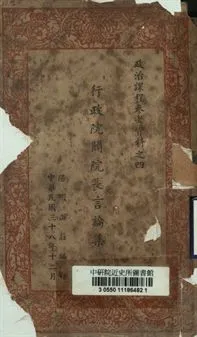 政治課程參考資料之四
行政院閻院長言論集
陽明山莊編印
中華民國三十八年十二月
中研院近史所圖書館
3 0550 11186492 1